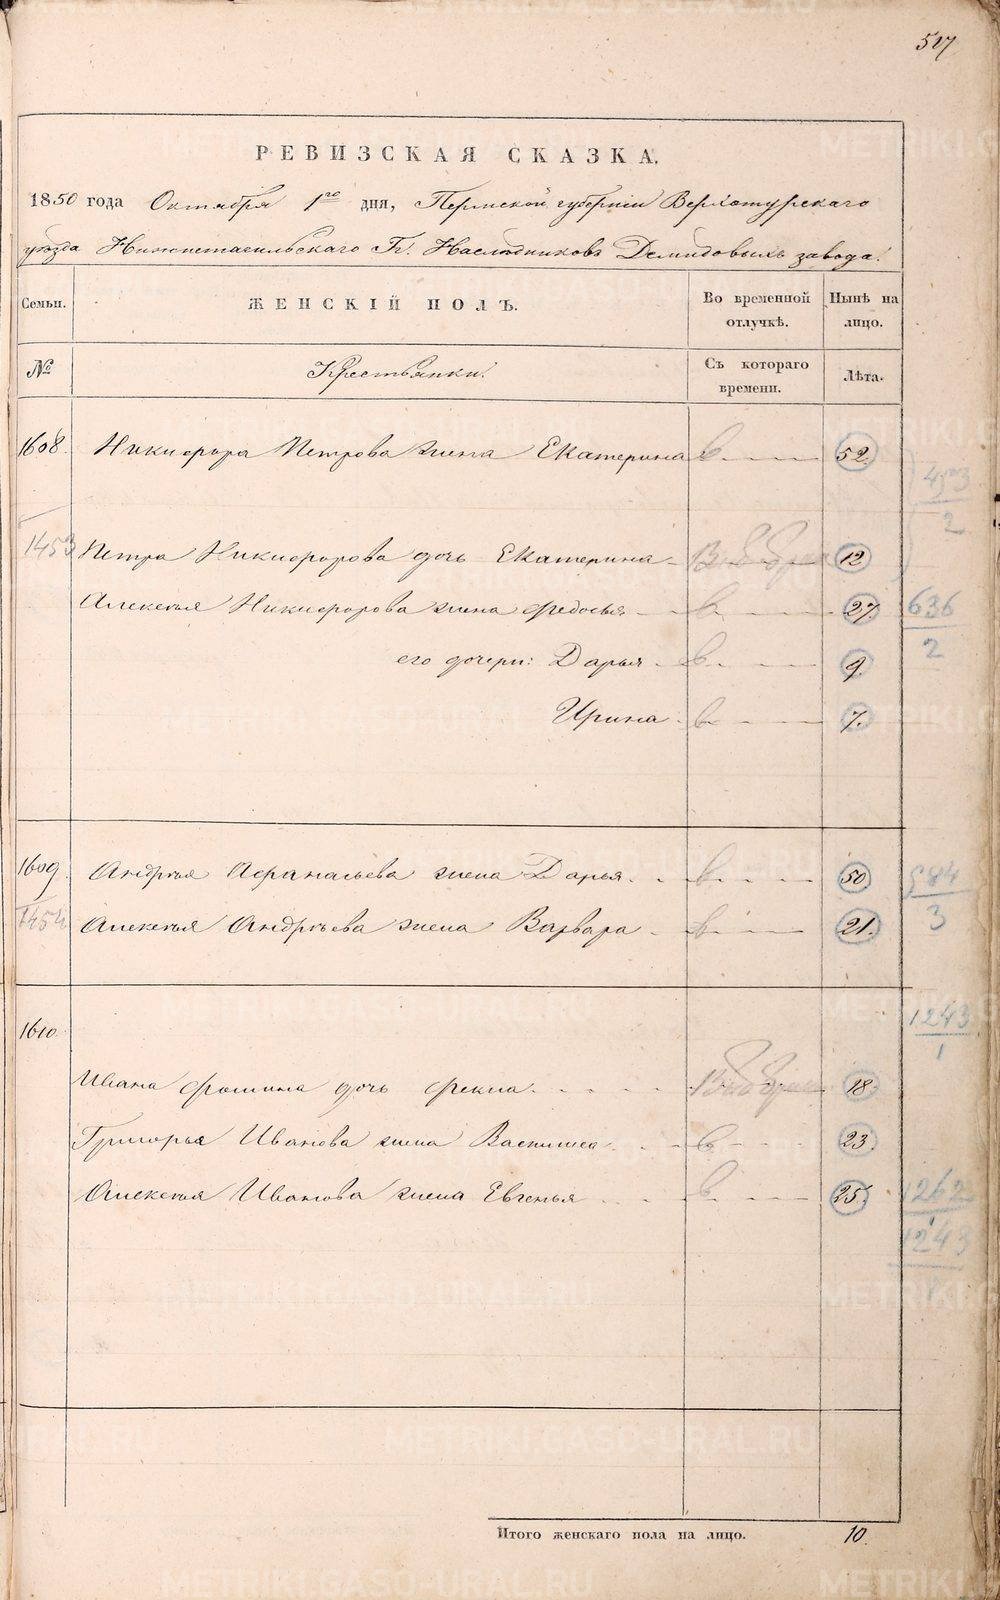 517
РЕВИЗСКАЯ СКАЗКА.
1850 года Октября 1го дня, Пермской губерніи Верхотурскаго
уѣзда Нижнетагильскаго Гг. Наслѣдниковъ Демидовыхъ завода.
Семьи. ЖЕНСКІЙ ПОЛЪ. Во временной отлучкѣ. Нынѣ на лицо.
№ Крестьянки. Съ котораго времени. Лѣта.
1608. Никифора Петрова жена Екатерина в. 52.
453
2
1453 Петра Никифорова дочь Екатерина 12
Алексѣя Никифорова жена Федосья в. 27.
636
2
его дочери: Дарья в. 9.
Ирина в. 7.
1609. Андрея Афанасьева жена Дарья в. 50.
984
3
1454 Алексѣя Андрѣева жена Варвара в. 21.
1610.
1243
1
Ивана Фомина дочь Фекла 18.
Григорья Иванова жена Василиса в. 23.
Алексѣя Иванова жена Евгенья в. 25.
1262
1
1243
Итого женскаго пола на лицо. 10.
METRIKI.GASO-URAL.RU